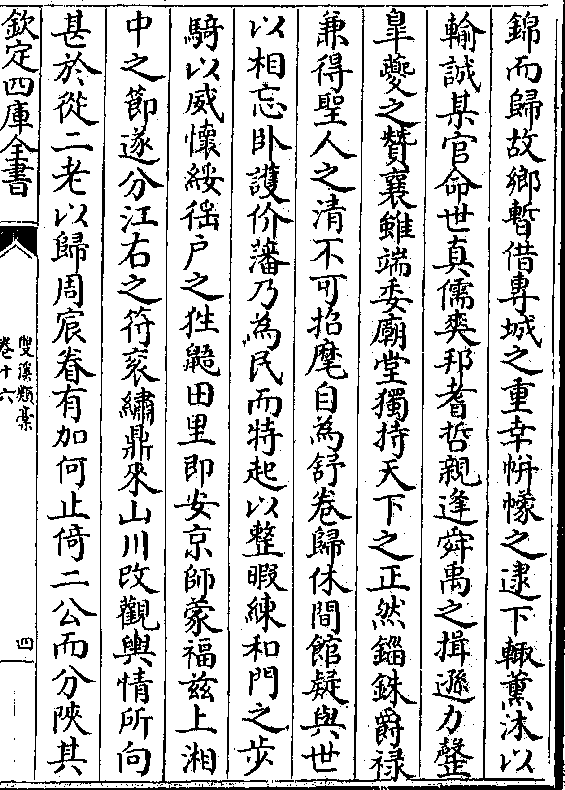 錦而歸故鄉暫借專城之重幸帡幪之逮下輙薰沐以
輸誠某官命世真儒爽邦耆哲親逢舜禹之揖遜力罄
臯夔之贊襄雖端委廟堂獨持天下之正然錙銖爵禄
兼得聖人之清不可招麾自為舒卷歸休間館疑與世
以相忘卧護价藩乃為民而特起以整暇練和門之步
騎以威懷綏徭户之狌鼯田里即安京師蒙福兹上湘
中之節遂分江右之符衮繡鼎來山川改觀輿情所向
甚於從二老以歸周宸眷有加何止倚二公而分陜其
欽定四庫全書
雙溪類藁
卷十六
四